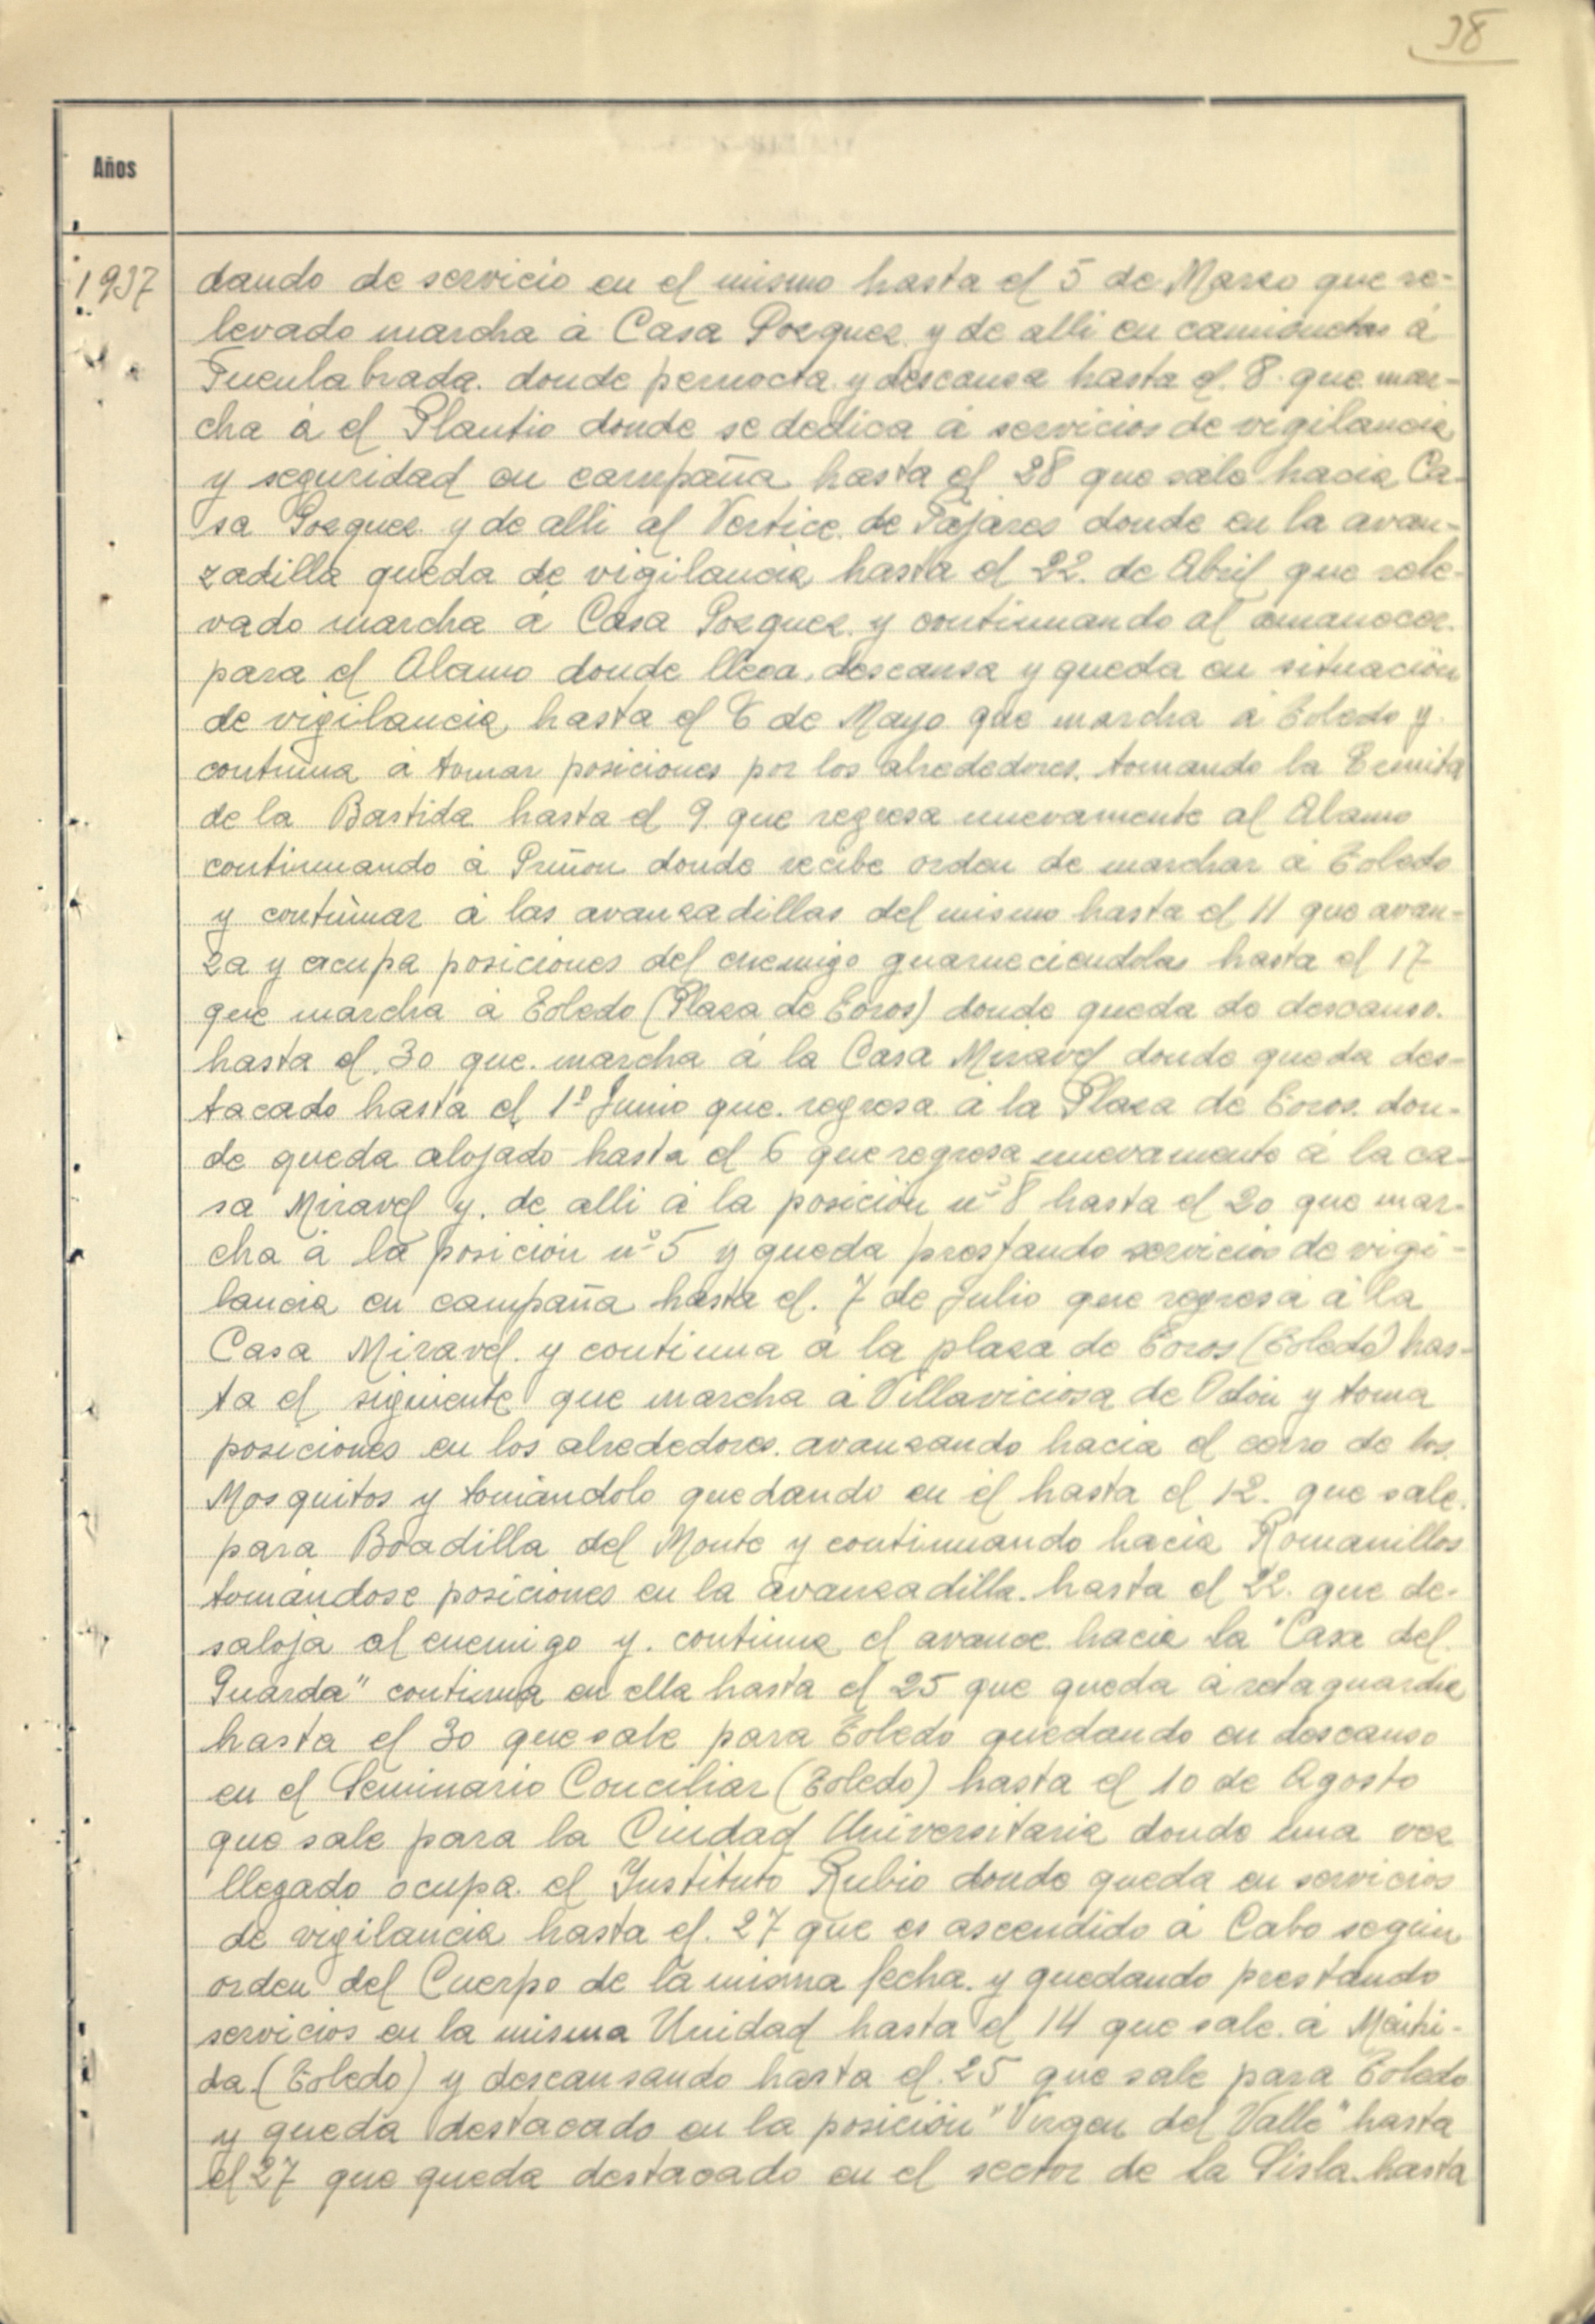 38
Años
1937
dando de servicio en el mismo hasta el 5 de Marzo que re-
levado marcha á Casa Gozquez y de alli en camionetas á
Fuenlabrada. donde pernocta y descansa hasta el 8 que mar-
cha á el Plantio donde se dedica á servicios de vigilancia
y seguridad en campaña hasta el 28 que sale hacia Ca-
sa Gozquez y de alli al Vertice de Pajares donde en la avan-
zadilla queda de vigilancia hasta el 22 de Abril que rele-
vado marcha á Casa Gozquez y continuando al amanecer
para el Alamo donde llega, descansa y queda en situación
de vigilancia hasta el 8 de Mayo que marcha á Toledo y
continua á tomar posiciones por los alrededores, tomando la Ermita
de la Bastida hasta el 9 que regresa nuevamente al Alamo
continuando á Griñon donde recibe orden de marchar á Toledo
y continuar á las avanzadillas del mismo hasta el 11 que avan-
za y ocupa posiciones del enemigo guarneciendolas hasta el 17
que marcha á Toledo (Plaza de Toros) donde queda de descanso.
hasta el 30 que marcha á la Casa Miravel donde queda des-
tacado hasta el 1º Junio que regresa á la Plaza de Toros don-
de queda alojado hasta el 6 que regresa nuevamente á la ca-
sa Miravel y de alli á la posición nº 8 hasta el 20 que mar-
cha á la posición nº 5 y queda prestando servicios de vigi-
lancia en campaña hasta el 7 de Julio que regresa á la
Casa Miravel y continua á la plaza de Toros (Toledo) has-
ta el siguiente que marcha á Villaviciosa de Odón y toma
posiciones en los alrededores avanzando hacia el cerro de los
Mosquitos y tomándolo quedando en él hasta el 12 que sale
para Boadilla del Monte y continuando hacia Romanillos
tomándose posiciones en la avanzadilla hasta el 22 que de-
saloja al enemigo y continua el avance hacia la "Casa del
Guarda" continua en ella hasta el 25 que queda á retaguardia
hasta el 30 que sale para Toledo quedando en descanso
en el Seminario Conciliar (Toledo) hasta el 10 de Agosto
que sale para la Ciudad Universitaria donde una vez
llegado ocupa el Instituto Rubio donde queda en servicios
de vigilancia hasta el 27 que es ascendido á Cabo según
orden del Cuerpo de la misma fecha y quedando prestando
servicios en la misma Unidad hasta el 14 que sale á Méntri-
da (Toledo) y descansando hasta el 25 que sale para Toledo
y queda destacado en la posición "Virgen del Valle" hasta
el 27 que queda destacado en el sector de la Sisla hasta